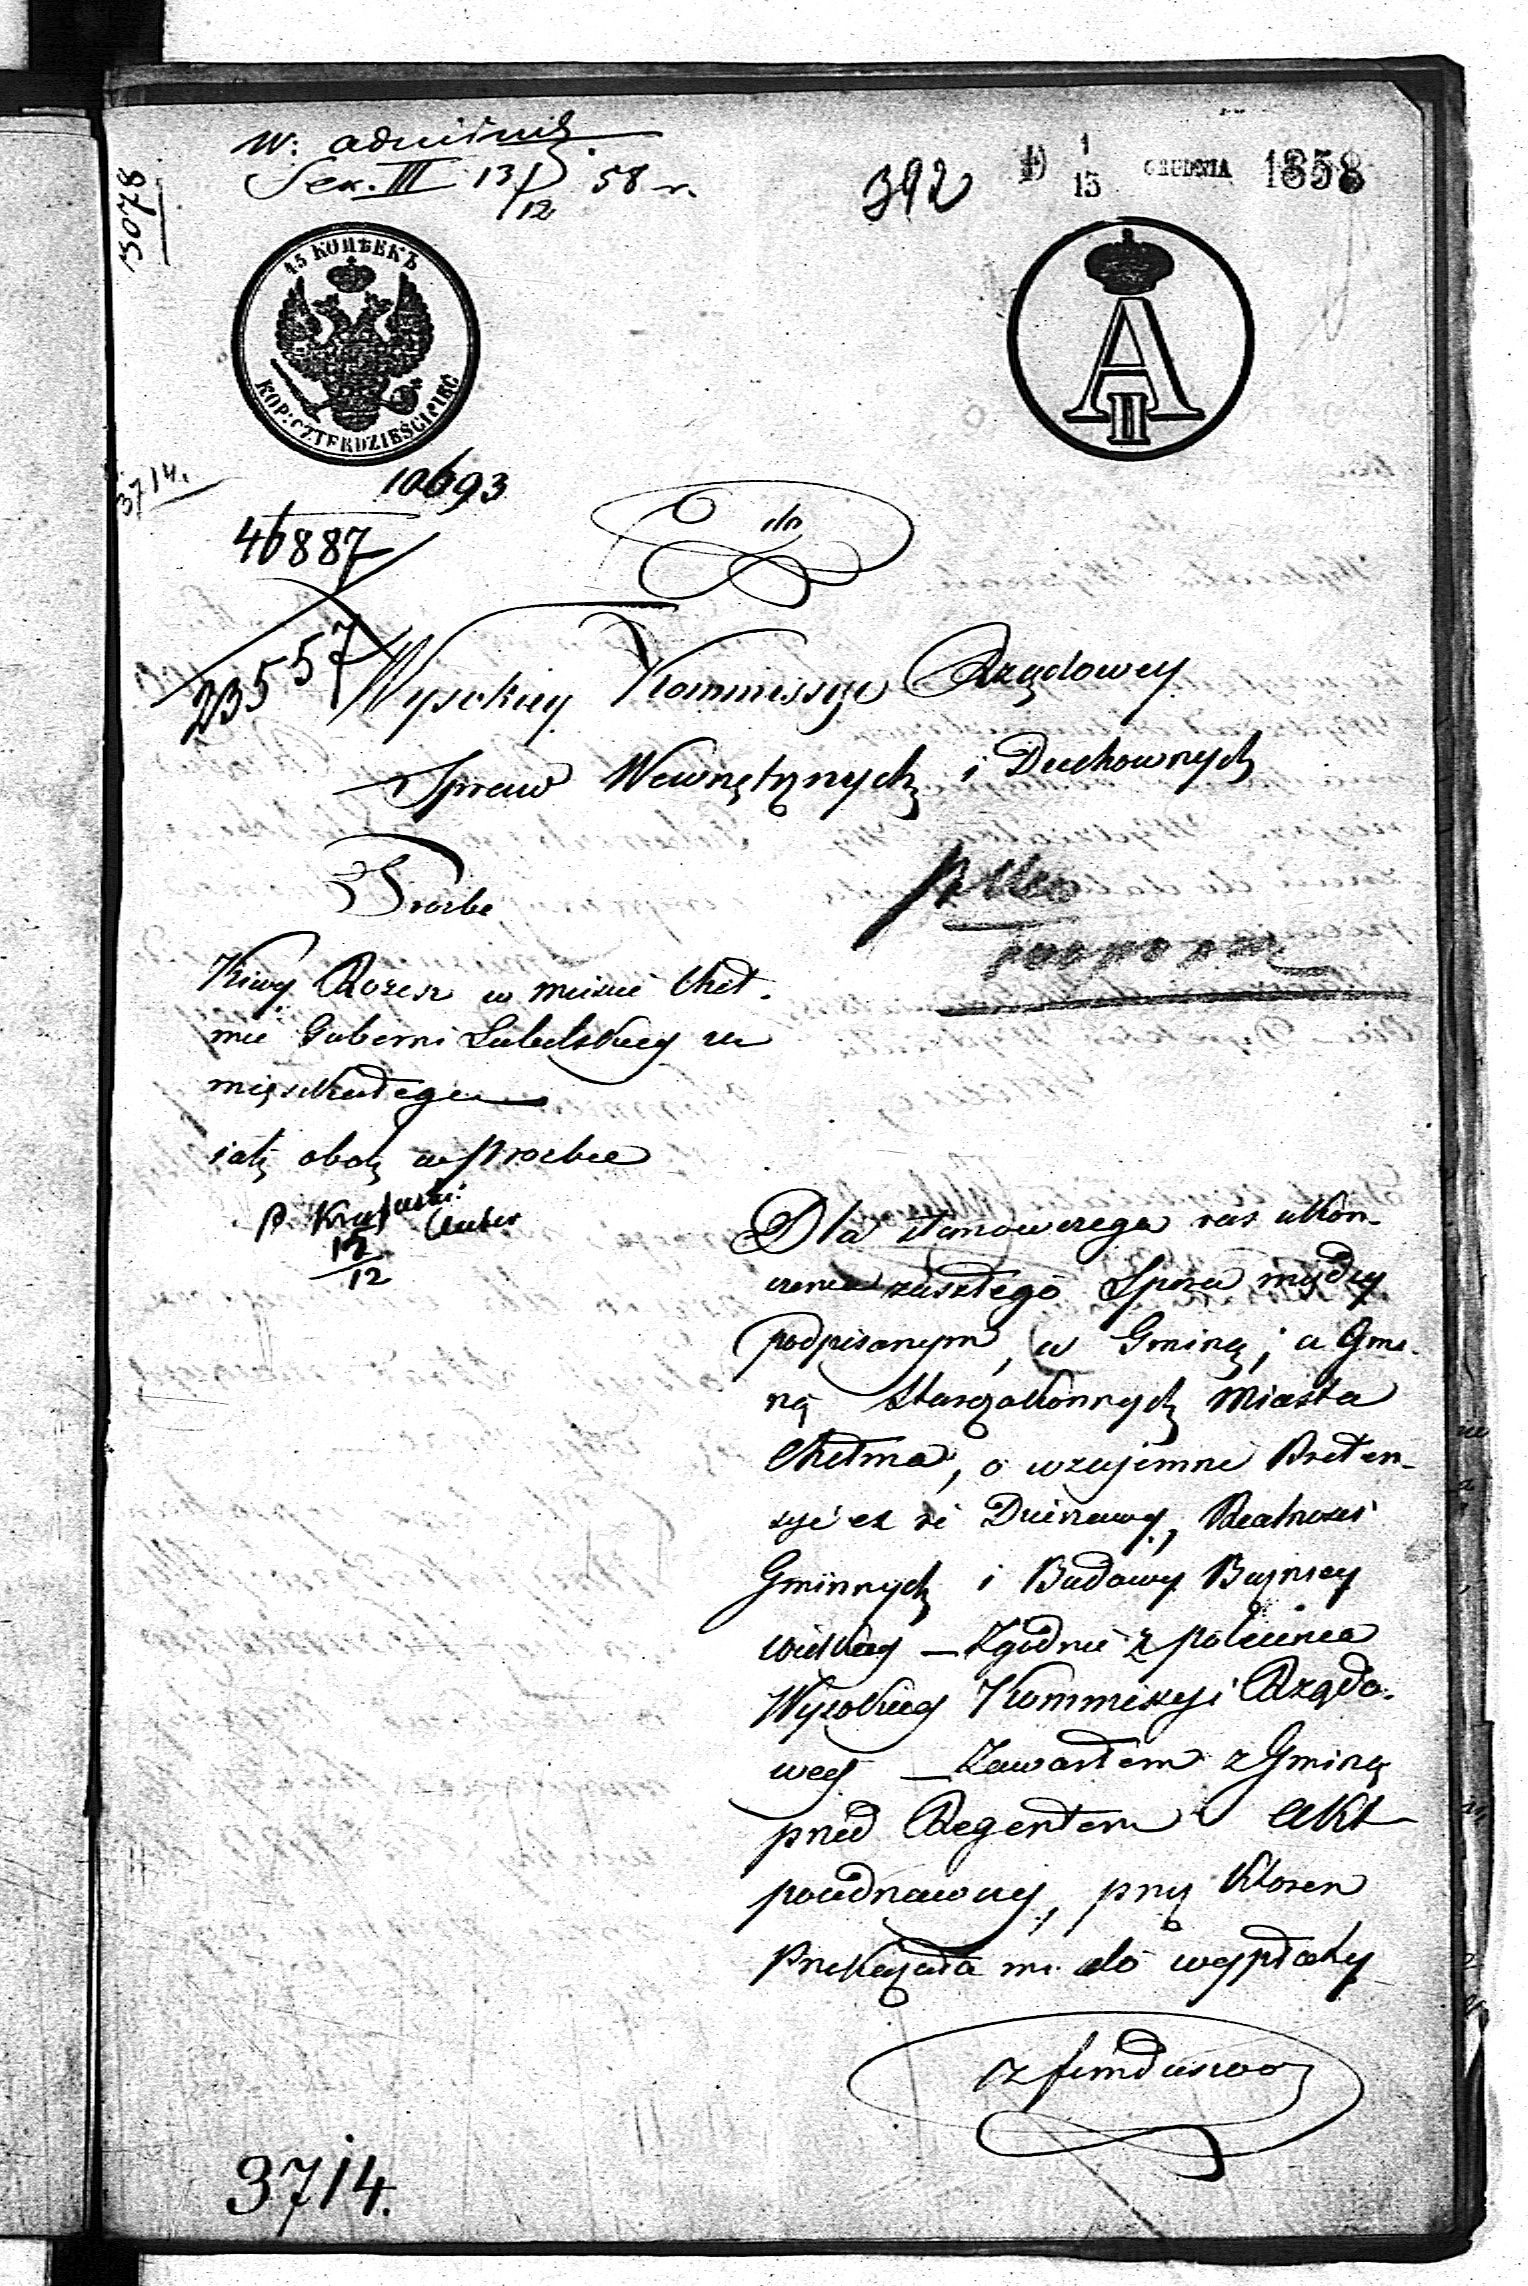 W: administr.
Sek. III 13/12 58 r.
392
1/13 GRUDNIA 1858
15078
45 КОПѢЕКЪ
KOP: CZTERDZIEŚCI PIĘĆ
A II
3714.
10693
46887
23557
do
Wysokiey Kommissyi Rządowey
Spraw Wewnętrznych i Duchownych
Prozba
Kiwy Rozen w mieście Cheł.
mie Guberni Lubelskiey za
mięszkałego
iak obok w prozbie
15/12
Dla stanowczego raz ukoń-
czenia zaszłego sporu między
podpisanym, a Gminą, a Gmi-
ną Starozakonnych Miasta
Chełma, o wzajemne Preten-
syie z Dzierzawy, Realnosci
Gminnych i Budowy Bużnicy
wielkiey — Zgodnie z polecenia
Wysokiey Kommissyi Rządo-
wey — Zawarłem z Gminą
przed Regentem Akt
poiednawczy, przy którem
Przekazała mi do wypłaty
z funduszow
3714.